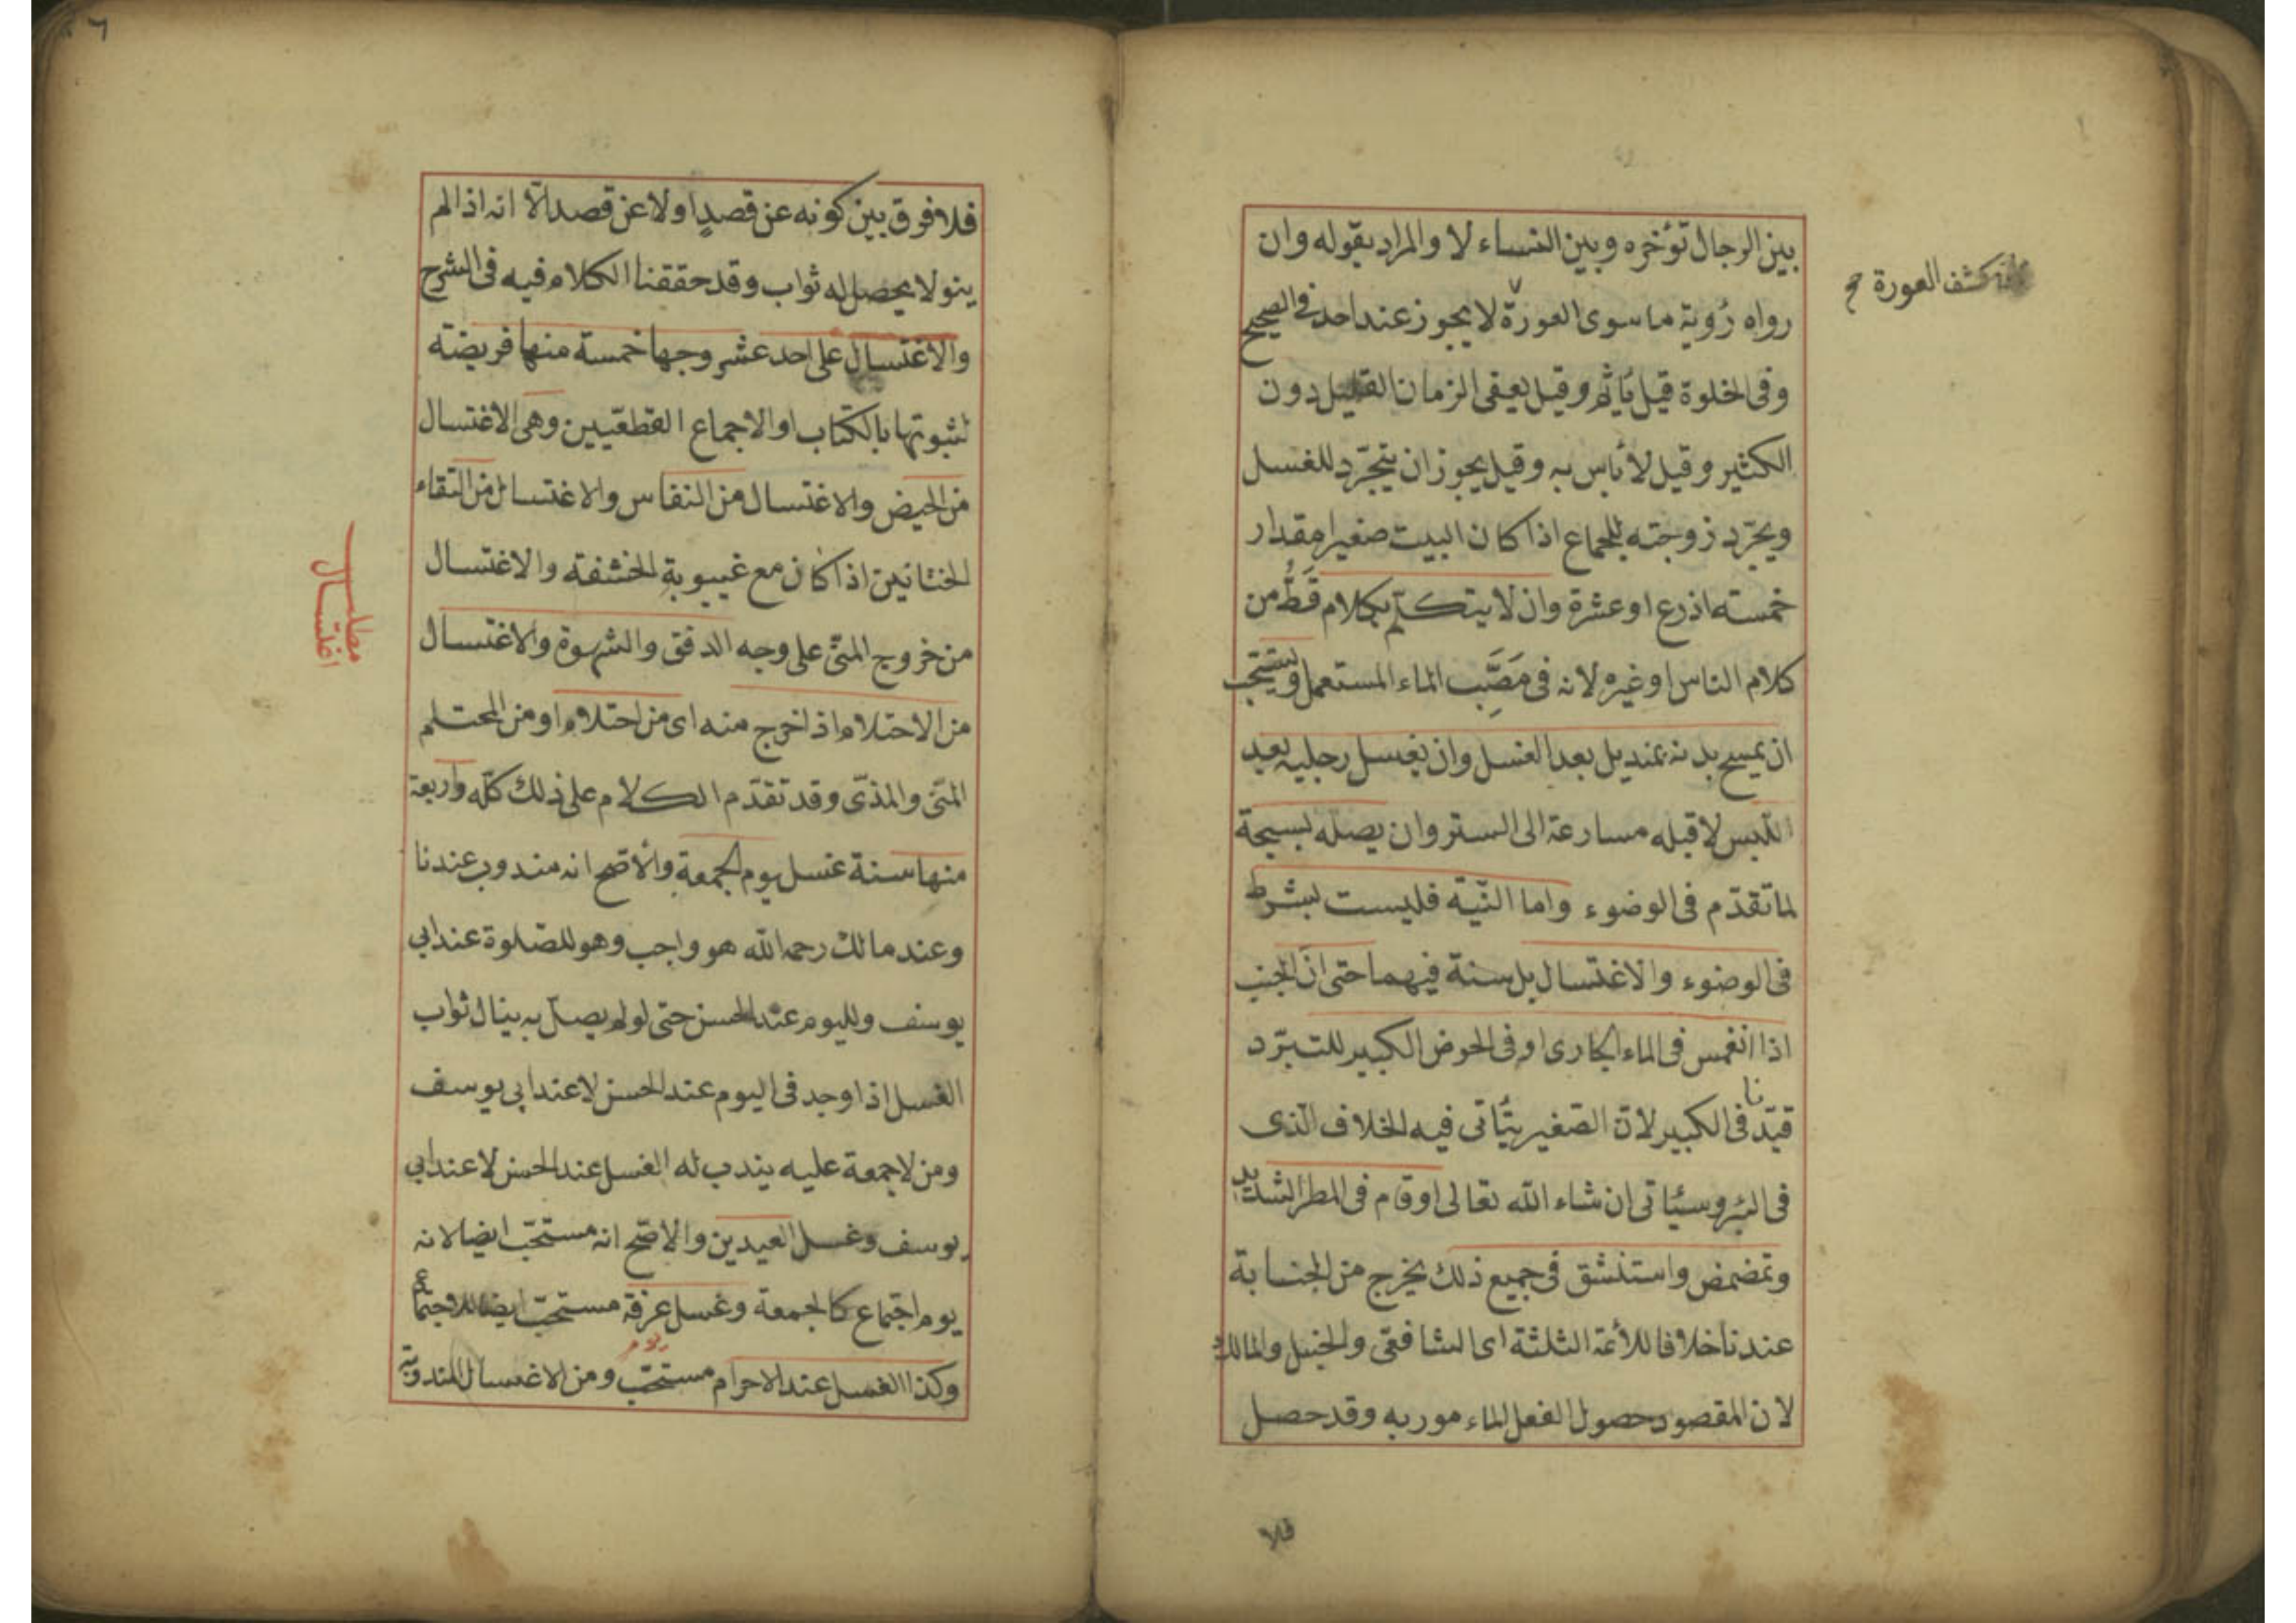 بين الرجال تؤخره وبين النساء لا والمراد بقوله وان
رواه رؤية ما سوى العورة لا يجوز عند احد فى الصحيح
كشف العورة صح
وفى الخلوة قيل يأثم وقيل يعفى الزمان القليل دون
الكثير وقيل لا بأس به وقيل يجوز ان يتجرّد للغسل
ويجرّد زوجته للجماع اذا كان البيت صغيرا مقدار
خمسة اذرع او عشرة وان لا يتكلّم بكلام قَطُّ من
كلام الناس او غيره لانه فى مَصَبِّ الماء المستعمل ويستحب
ان يمسح بدنه بمنديل بعد الغسل وان يغسل رجليه بعد
اللبس لا قبله مسارعة الى الستر وان يصله بسبحة
لما تقدّم فى الوضوء واما النيّة فليست بشرط
فى الوضوء والاغتسال بل سنة فيهما حتى انّ الجنب
اذا انغمس فى الماء الجارى او فى الحوض الكبير للتبرّد
قيّدنا فى الكبير لانّ الصّغير يتأتى فيه الخلاف الّذى
فى البئر وسيأتى ان شاء الله تعالى او قام فى المطر الشديد
وتمضمض واستنشق فى جميع ذلك يخرج من الجنابة
عندنا خلافا للأئمة الثلثة اى الشافعى والحنبل والمالك
لان المقصود حصول الفعل الماء مور به وقد حصل
فلا
٦
فلا فرق بين كونه عن قصدٍ او لا عن قصد الّا انه اذا لم
ينو لا يحصل له ثواب وقد حققنا الكلام فيه فى الشرح
والاغتسال على احد عشر وجها خمسة منها فريضة
لثبوتها بالكتاب او الاجماع القطعيّين وهى الاغتسال
من الحيض والاغتسال من النفاس والاغتسال من التقاء
الختانين اذا كان مع غيبوبة الخشفة والاغتسال
مطلب اغتسال
من خروج المنىّ على وجه الدفق والشهوة والاغتسال
من الاحتلام اذا خرج منه اى من احتلام او من المحتلم
المنىّ والمذىّ وقد تقدّم الكلام على ذلك كلّه واربعة
منها سنة غسل يوم الجمعة والأصح انه مندوب عندنا
وعند مالك رحمه الله هو واجب وهو للصّلوة عند ابى
يوسف ولليوم عند الحسن حتى لو لم يصلّ به ينال ثواب
الغسل اذا وجد فى اليوم عند الحسن لا عند ابى يوسف
ومن لا جمعة عليه يندب له الغسل عند الحسن لا عند ابى
يوسف وغسل العيدين والاصّح انه مستحبّ ايضا لانه
يوم اجتماع كالجمعة وغسل عرفة مستحبّ ايضا للاجتماع
يوم
وكذا الغسل عند الاحرام مستحبّ ومن الاغسال المندوبة